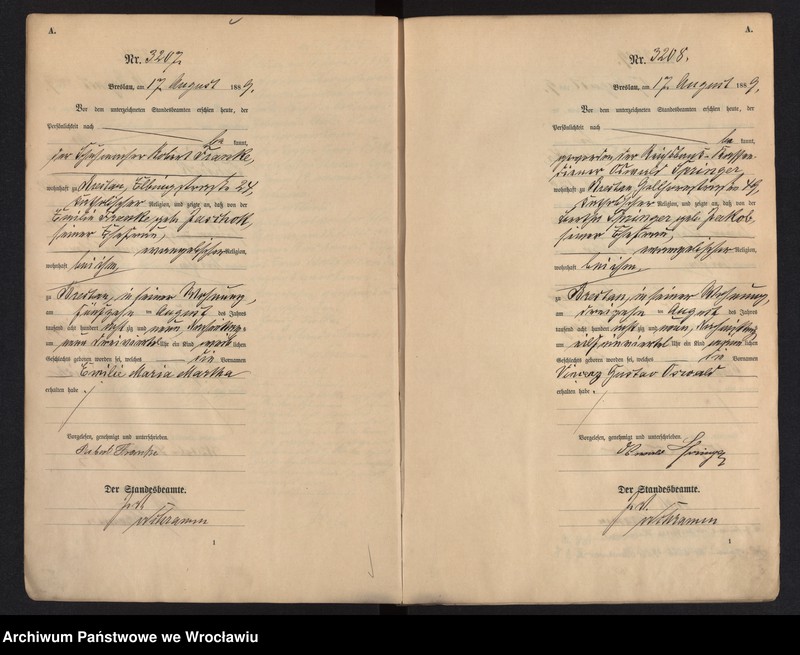 A.
Nr. 3207.
Breslau, am 17. August 1889.
Vor dem unterzeichneten Standesbeamten erschien heute, der
Persönlichkeit nach
be kannt,
der Robert Franke,
wohnhaft zu Breslau, 24,
katholischer Religion, und zeigte an, daß von der
Emilie Franke geb.
seiner Ehefrau,
evangelischer Religion,
wohnhaft bei ihm,
zu Breslau, in seiner Wohnung,
am fünfzehn ten August des Jahres
tausend acht hundert acht zig und neun, Nachmittags
um neun dreiviertel Uhr ein Kind weib lichen
Geschlechts geboren worden sei, welches die Vornamen
Emilie Maria Martha
erhalten habe.
Vorgelesen, genehmigt und unterschrieben.
Robert Franke
Der Standesbeamte.
J. V.
Schramm
1
A.
Nr. 3208.
Breslau, am 17. August 1889.
Vor dem unterzeichneten Standesbeamten erschien heute, der
Persönlichkeit nach
be kannt,
der Reichsbank-Kassen-
diener Oswald Springer
wohnhaft zu Breslau
katholischer Religion, und zeigte an, daß von der
Bertha Springer geb. Jakob,
seiner Ehefrau,
evangelischer Religion,
wohnhaft bei ihm,
zu Breslau, in seiner Wohnung,
am dreizehn ten August des Jahres
tausend acht hundert acht zig und neun, Nachmittags
um einviertel Uhr ein Kind männ lichen
Geschlechts geboren worden sei, welches die Vornamen
Gustav Oswald
erhalten habe.
Vorgelesen, genehmigt und unterschrieben.
Oswald Springer
Der Standesbeamte.
J. V.
Schramm
1
Archiwum Państwowe we Wrocławiu